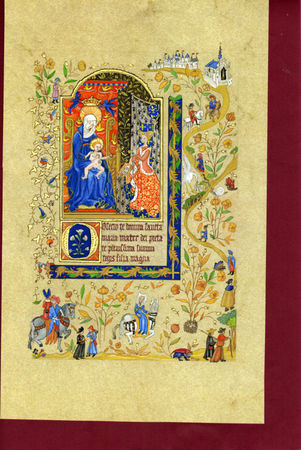 Obsecro te domina sancta
maria mater dei pieta
te plenissima summi
regis filia